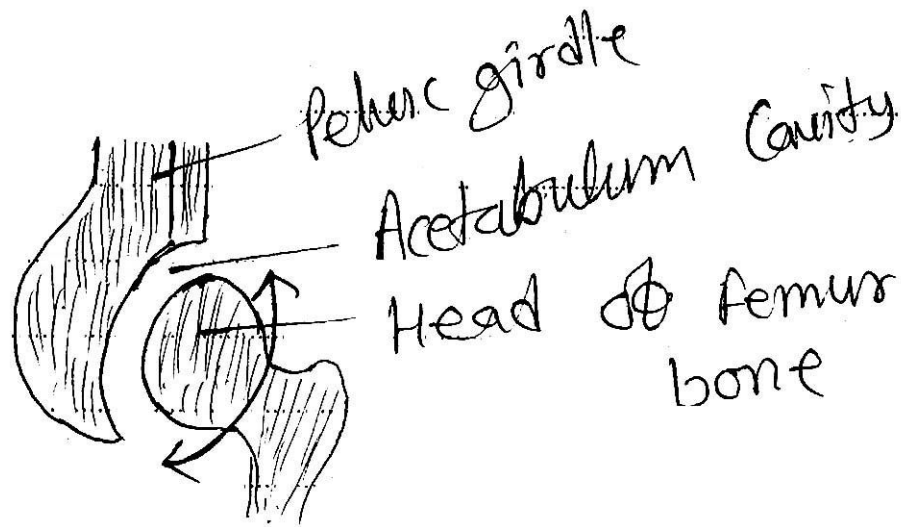 Pelvic girdle
Acetabulum Cavity
Head of femur
bone